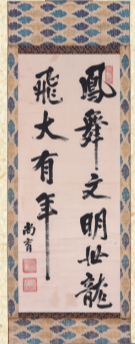 鳳舞文明世龍
飛大有年